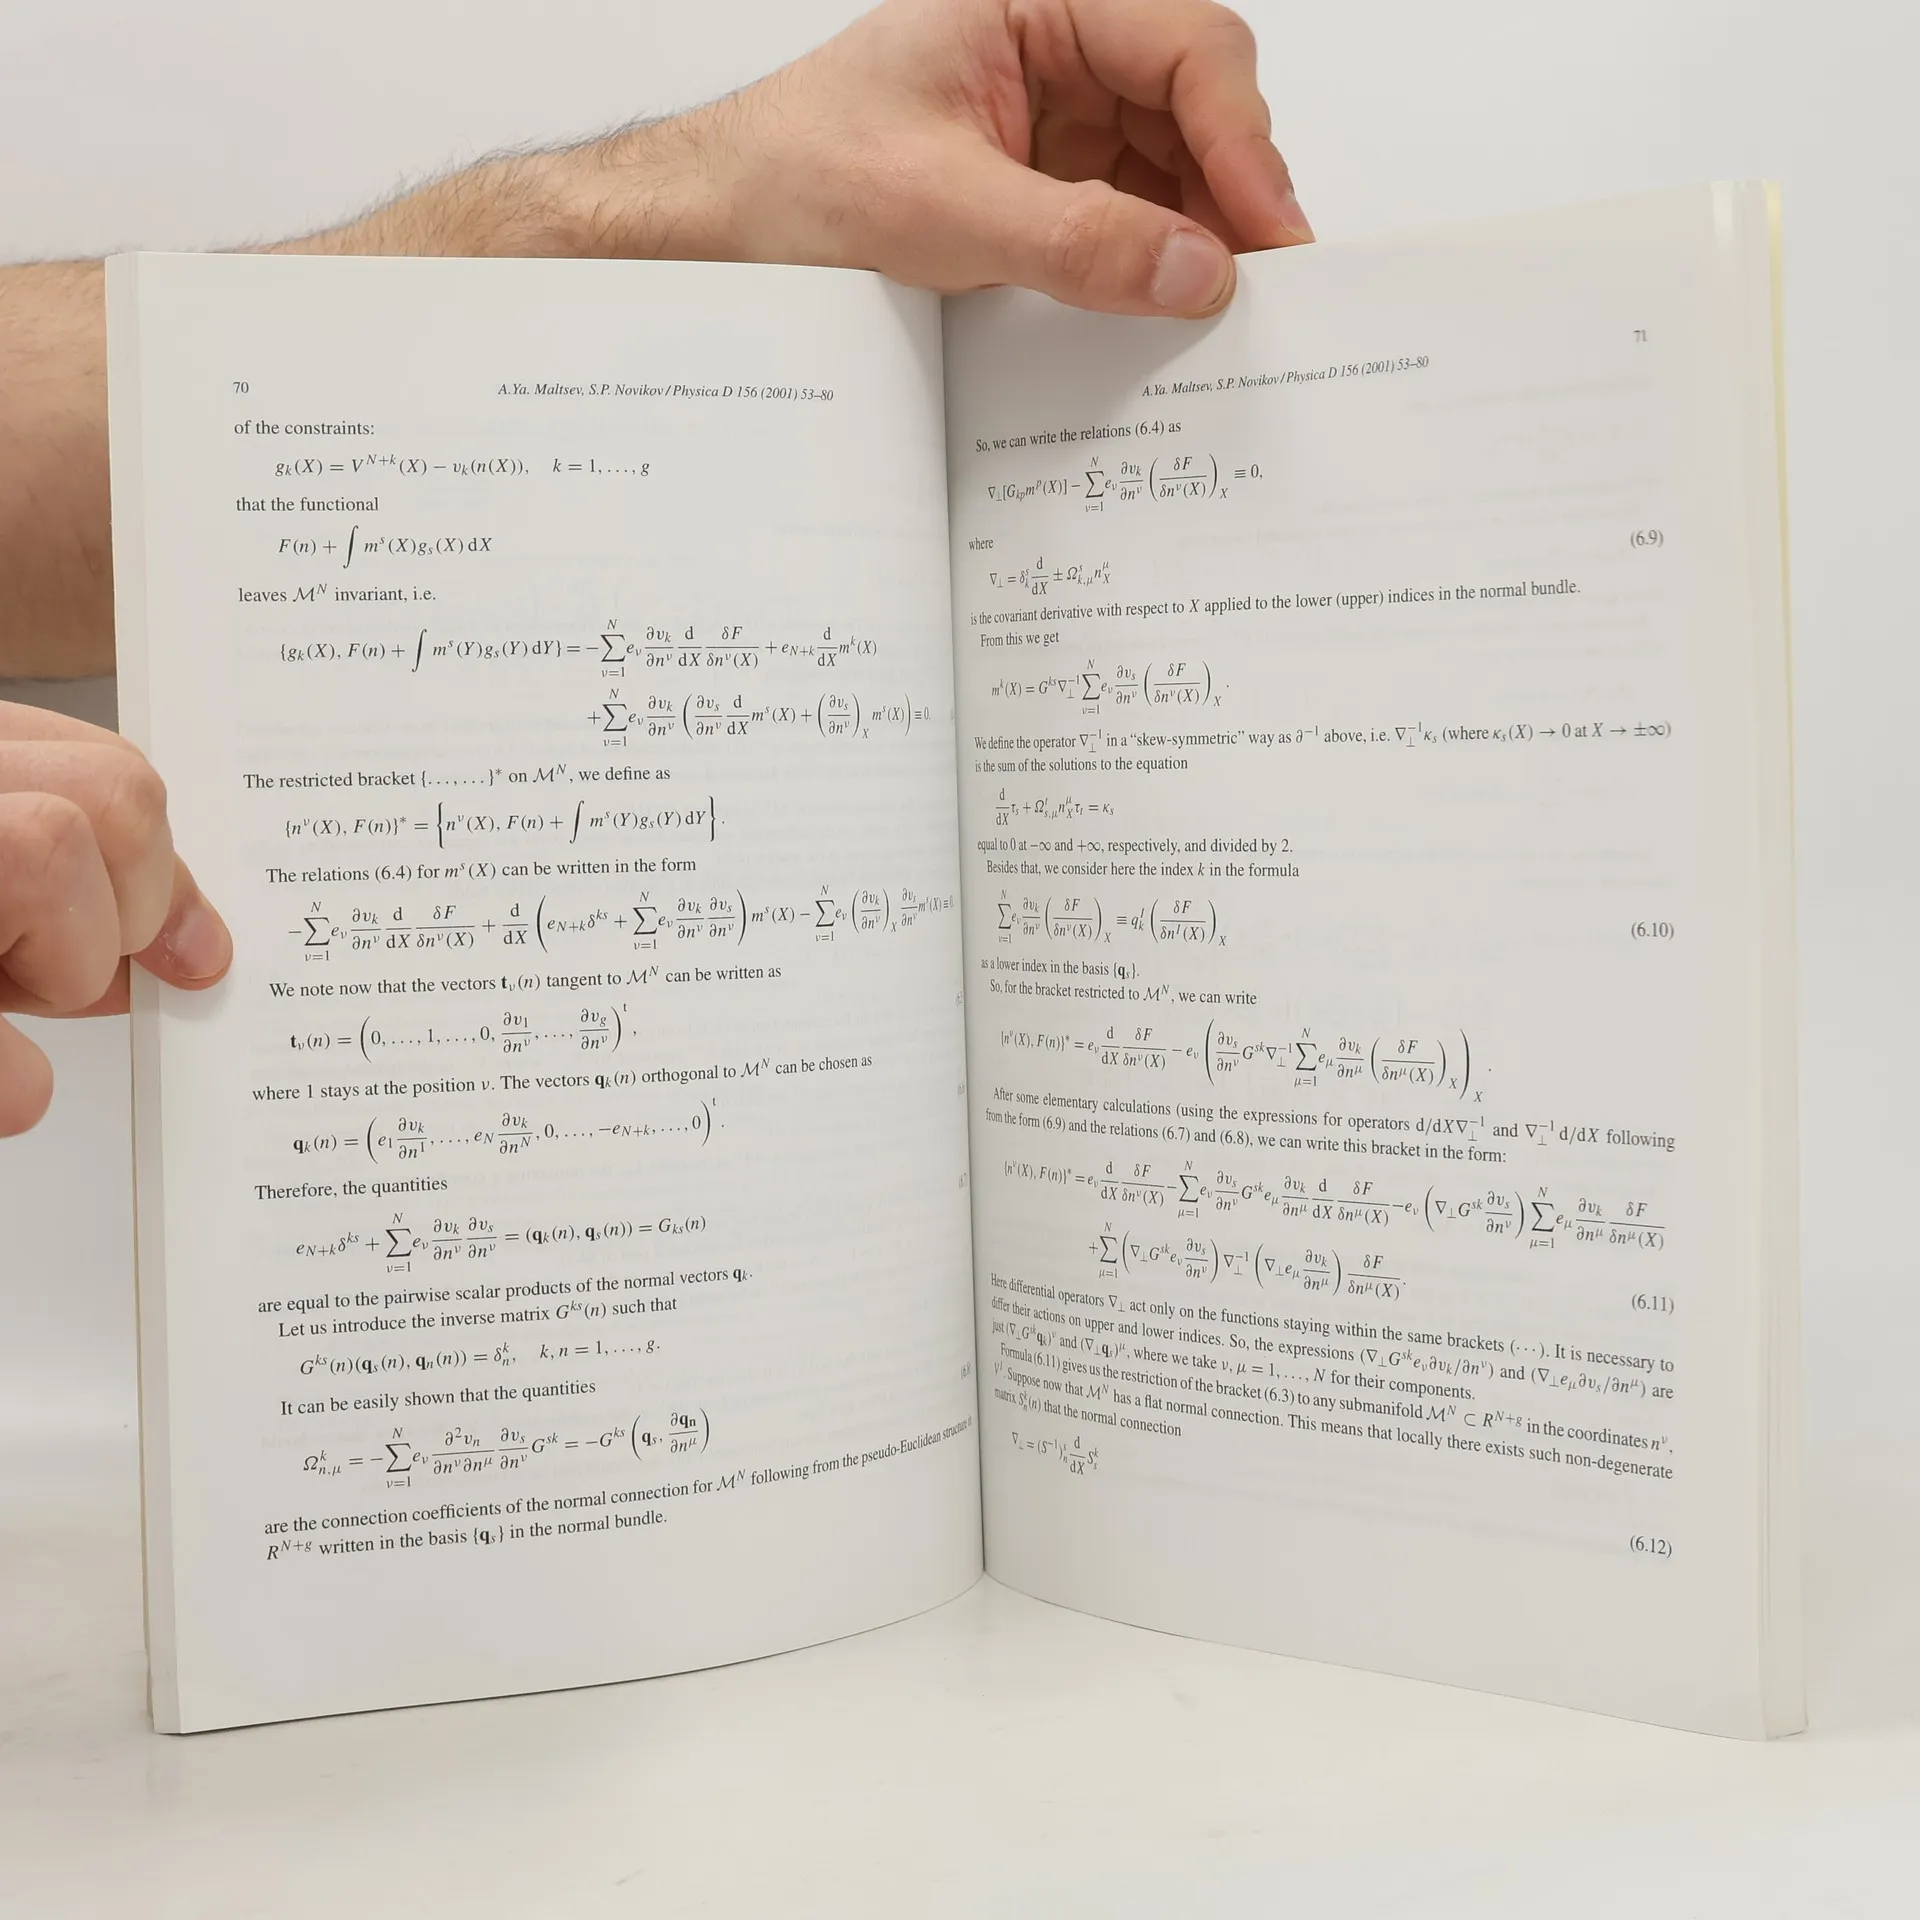 70
A.Ya. Maltsev, S.P. Novikov / Physica D 156 (2001) 53–80
of the constraints:
g_k(X) = V^{N+k}(X) − v_k(n(X)), k = 1, …, g
that the functional
F(n) + ∫ m^s(X)g_s(X) dX
leaves M^N invariant, i.e.
{g_k(X), F(n) + ∫ m^s(Y)g_s(Y) dY} = −∑_{ν=1}^N e_ν ∂v_k/∂n^ν d/dX δF/δn^ν(X) + e_{N+k} d/dX m^k(X)
+∑_{ν=1}^N e_ν ∂v_k/∂n^ν (∂v_s/∂n^ν d/dX m^s(X) + (∂v_s/∂n^ν)_X m^s(X)) ≡ 0.
The restricted bracket {…, …}* on M^N, we define as
{n^ν(X), F(n)}* = {n^ν(X), F(n) + ∫ m^s(Y)g_s(Y) dY}.
The relations (6.4) for m^s(X) can be written in the form
−∑_{ν=1}^N e_ν ∂v_k/∂n^ν d/dX δF/δn^ν(X) + d/dX (e_{N+k}δ^{ks} + ∑_{ν=1}^N e_ν ∂v_k/∂n^ν ∂v_s/∂n^ν) m^s(X) − ∑_{ν=1}^N e_ν (∂v_k/∂n^ν)_X ∂v_s/∂n^ν m^s(X) ≡ 0.
We note now that the vectors t_ν(n) tangent to M^N can be written as
t_ν(n) = (0, …, 1, …, 0, ∂v_1/∂n^ν, …, ∂v_g/∂n^ν)^t,
where 1 stays at the position ν. The vectors q_k(n) orthogonal to M^N can be chosen as
q_k(n) = (e_1 ∂v_k/∂n^1, …, e_N ∂v_k/∂n^N, 0, …, −e_{N+k}, …, 0)^t.
Therefore, the quantities
e_{N+k}δ^{ks} + ∑_{ν=1}^N e_ν ∂v_k/∂n^ν ∂v_s/∂n^ν = (q_k(n), q_s(n)) = G_{ks}(n)
are equal to the pairwise scalar products of the normal vectors q_k.
Let us introduce the inverse matrix G^{ks}(n) such that
G^{ks}(n)(q_s(n), q_n(n)) = δ^k_n, k, n = 1, …, g.
It can be easily shown that the quantities
Ω^k_{n,μ} = −∑_{ν=1}^N e_ν ∂²v_n/∂n^ν∂n^μ ∂v_s/∂n^ν G^{sk} = −G^{ks} (q_s, ∂q_n/∂n^μ)
are the connection coefficients of the normal connection for M^N following from the pseudo-Euclidean structure
R^{N+g} written in the basis {q_s} in the normal bundle.
71
A.Ya. Maltsev, S.P. Novikov / Physica D 156 (2001) 53–80
So, we can write the relations (6.4) as
∇_⊥[G_{kp}m^p(X)] − ∑_{ν=1}^N e_ν ∂v_k/∂n^ν (δF/δn^ν(X))_X ≡ 0,
where
∇_⊥ = δ^s_k d/dX ± Ω^s_{k,μ}n^μ_X (6.9)
is the covariant derivative with respect to X applied to the lower (upper) indices in the normal bundle.
From this we get
m^k(X) = G^{ks}∇_⊥^{−1} ∑_{ν=1}^N e_ν ∂v_s/∂n^ν (δF/δn^ν(X))_X.
We define the operator ∇_⊥^{−1} in a “skew-symmetric” way as ∂^{−1} above, i.e. ∇_⊥^{−1}κ_s (where κ_s(X) → 0 at X → ±∞)
is the sum of the solutions to the equation
d/dX τ_s + Ω^t_{s,μ}n^μ_X τ_t = κ_s
equal to 0 at −∞ and +∞, respectively, and divided by 2.
Besides that, we consider here the index k in the formula
∑_{ν=1}^N e_ν ∂v_k/∂n^ν (δF/δn^ν(X))_X ≡ q^I_k (δF/δn^I(X))_X (6.10)
as a lower index in the basis {q_s}.
So, for the bracket restricted to M^N, we can write
{n^ν(X), F(n)}* = e_ν d/dX δF/δn^ν(X) − e_ν (∂v_s/∂n^ν G^{sk}∇_⊥^{−1} ∑_{μ=1}^N e_μ ∂v_k/∂n^μ (δF/δn^μ(X))_X)_X.
After some elementary calculations (using the expressions for operators d/dX∇_⊥^{−1} and ∇_⊥^{−1} d/dX following
from the form (6.9) and the relations (6.7) and (6.8), we can write this bracket in the form:
{n^ν(X), F(n)}* = e_ν d/dX δF/δn^ν(X) − ∑_{μ=1}^N e_ν ∂v_s/∂n^ν G^{sk}e_μ ∂v_k/∂n^μ d/dX δF/δn^μ(X) − e_ν (∇_⊥G^{sk} ∂v_s/∂n^ν) ∑_{μ=1}^N e_μ ∂v_k/∂n^μ δF/δn^μ(X)
+∑_{μ=1}^N (∇_⊥G^{sk}e_ν ∂v_s/∂n^ν) ∇_⊥^{−1} (∇_⊥e_μ ∂v_k/∂n^μ) δF/δn^μ(X). (6.11)
Here differential operators ∇_⊥ act only on the functions staying within the same brackets (···). It is necessary to
differ their actions on upper and lower indices. So, the expressions (∇_⊥G^{sk}e_ν∂v_k/∂n^ν) and (∇_⊥e_μ∂v_s/∂n^μ) are
just (∇_⊥G^{sk}q_k)^ν and (∇_⊥q_s)^μ, where we take ν, μ = 1, …, N for their components.
Formula (6.11) gives us the restriction of the bracket (6.3) to any submanifold M^N ⊂ R^{N+g} in the coordinates n^ν,
V^I. Suppose now that M^N has a flat normal connection. This means that locally there exists such non-degenerate
matrix S^k_n(n) that the normal connection
∇_⊥ = (S^{−1})^s_n d/dX S^k_s (6.12)